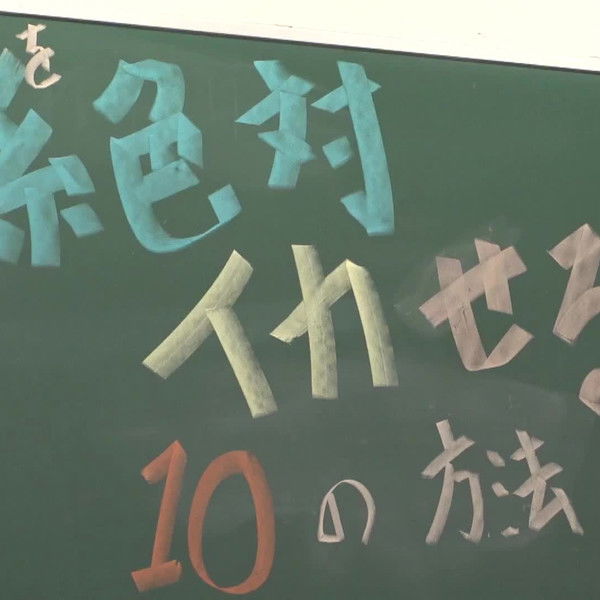 を
絶対
イカせる
10の方法